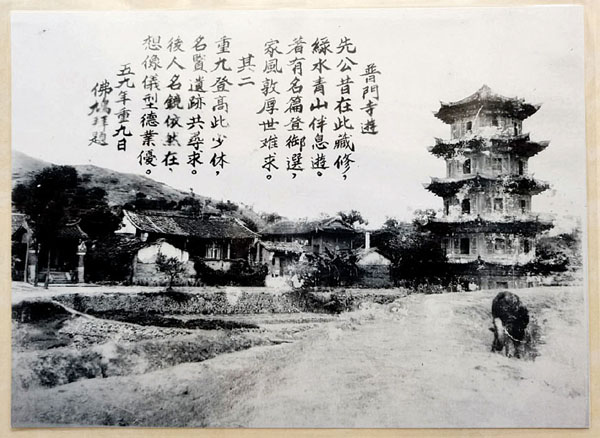 普門寺遊
先公昔在此藏修，
綠水青山伴息遊。
著有名篇登御選，
家風敦厚世难求。
其二
重九登高此少休，
名賢遺跡共尋求。
後人名鏡依然在，
想像儀型德業優。
五九年重九日
佛鳩拜題